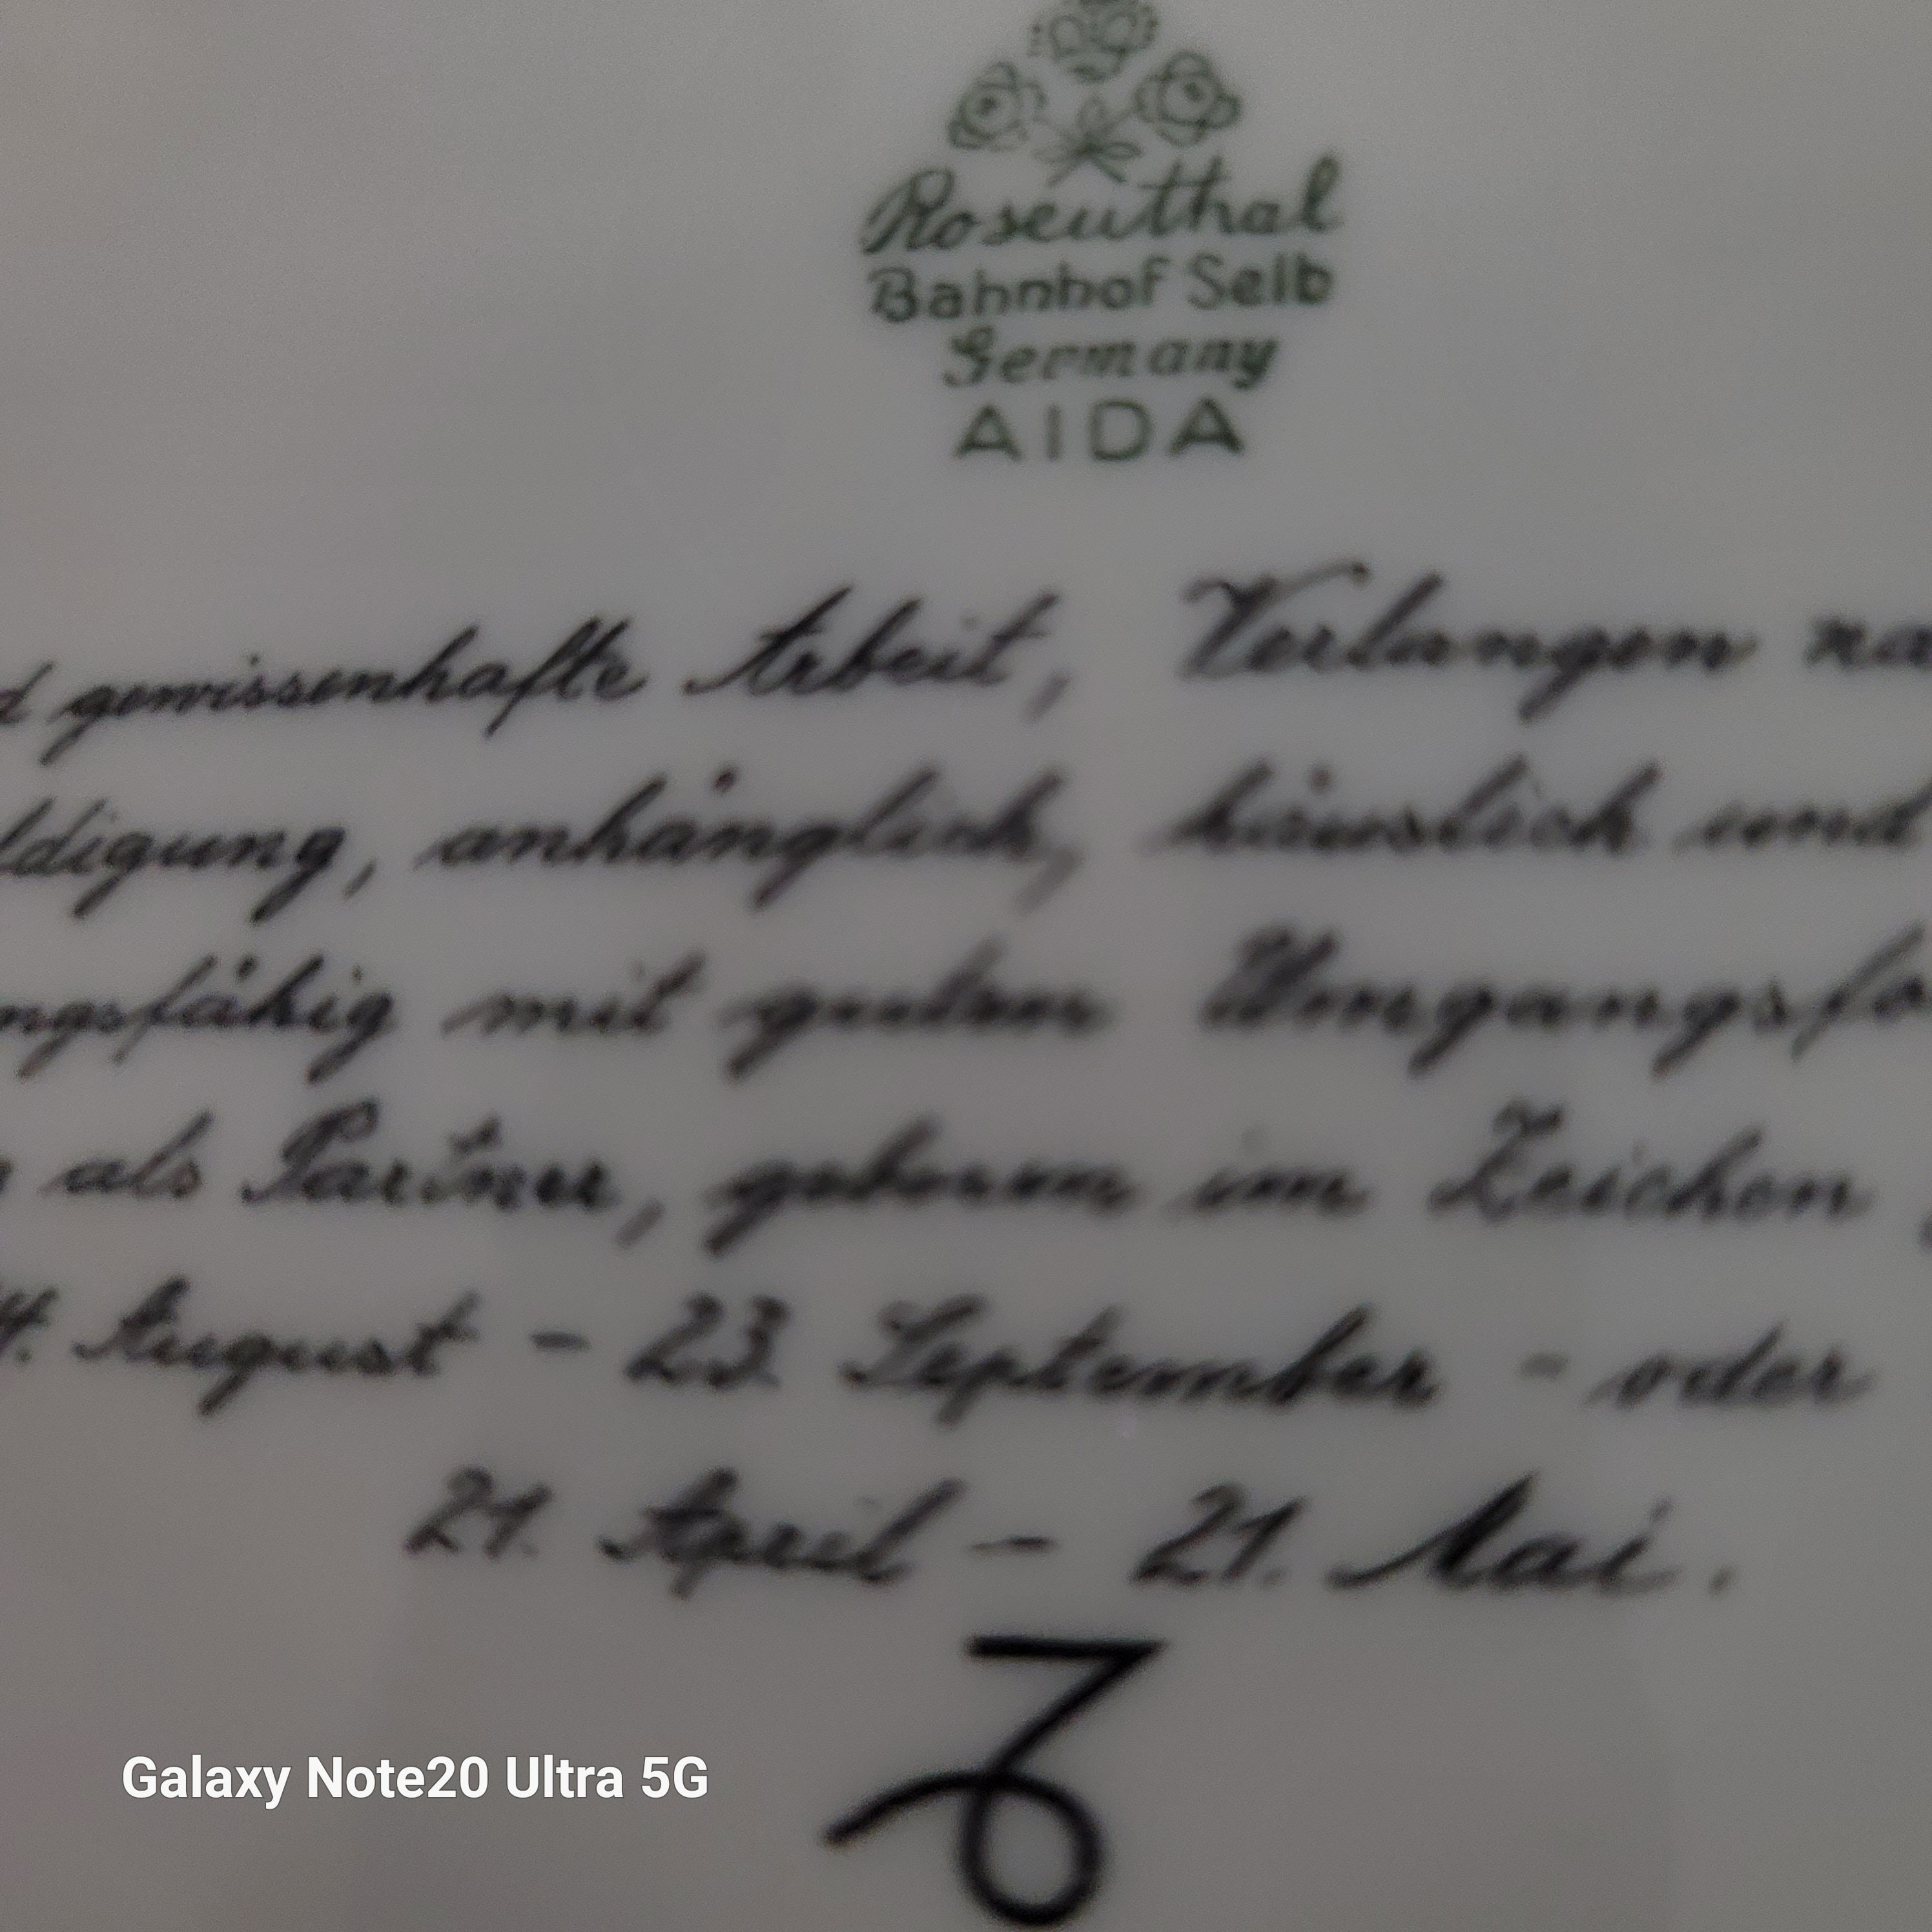 Rosenthal
Bahnhof Selb
Germany
AIDA
gewissenhafte Arbeit, Verlangen
anhänglich, häuslich und
mit guten
als Partner, geboren im Zeichen
August - 23. September - oder
21. April - 21. Mai.
Galaxy Note20 Ultra 5G